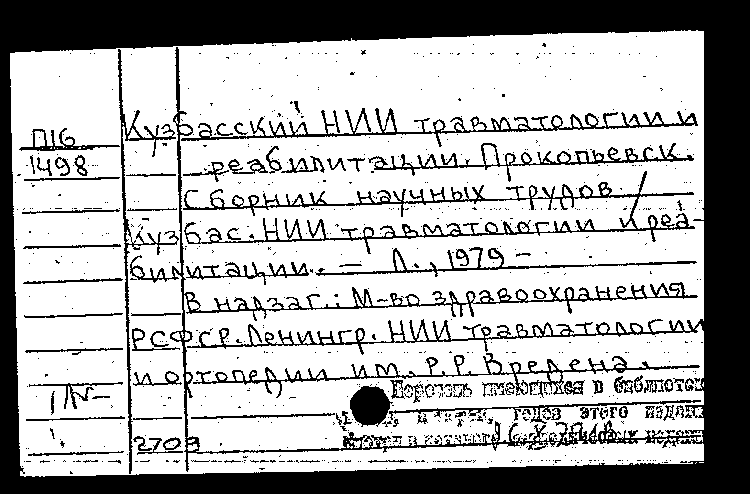 П16
1498
Кузбасский НИИ травматологии и
реабилитации. Прокопьевск.
Сборник научных трудов /
Кузбас. НИИ травматологии и реа-
билитации. – Л., 1979 –
В надзаг.: М-во здравоохранения
РСФСР. Ленингр. НИИ травматологии
и ортопедии им. Р.Р. Вредена.
Перечень имеющихся в библиотек
годов этого издан
смотри в каталоге периодических издани
2709